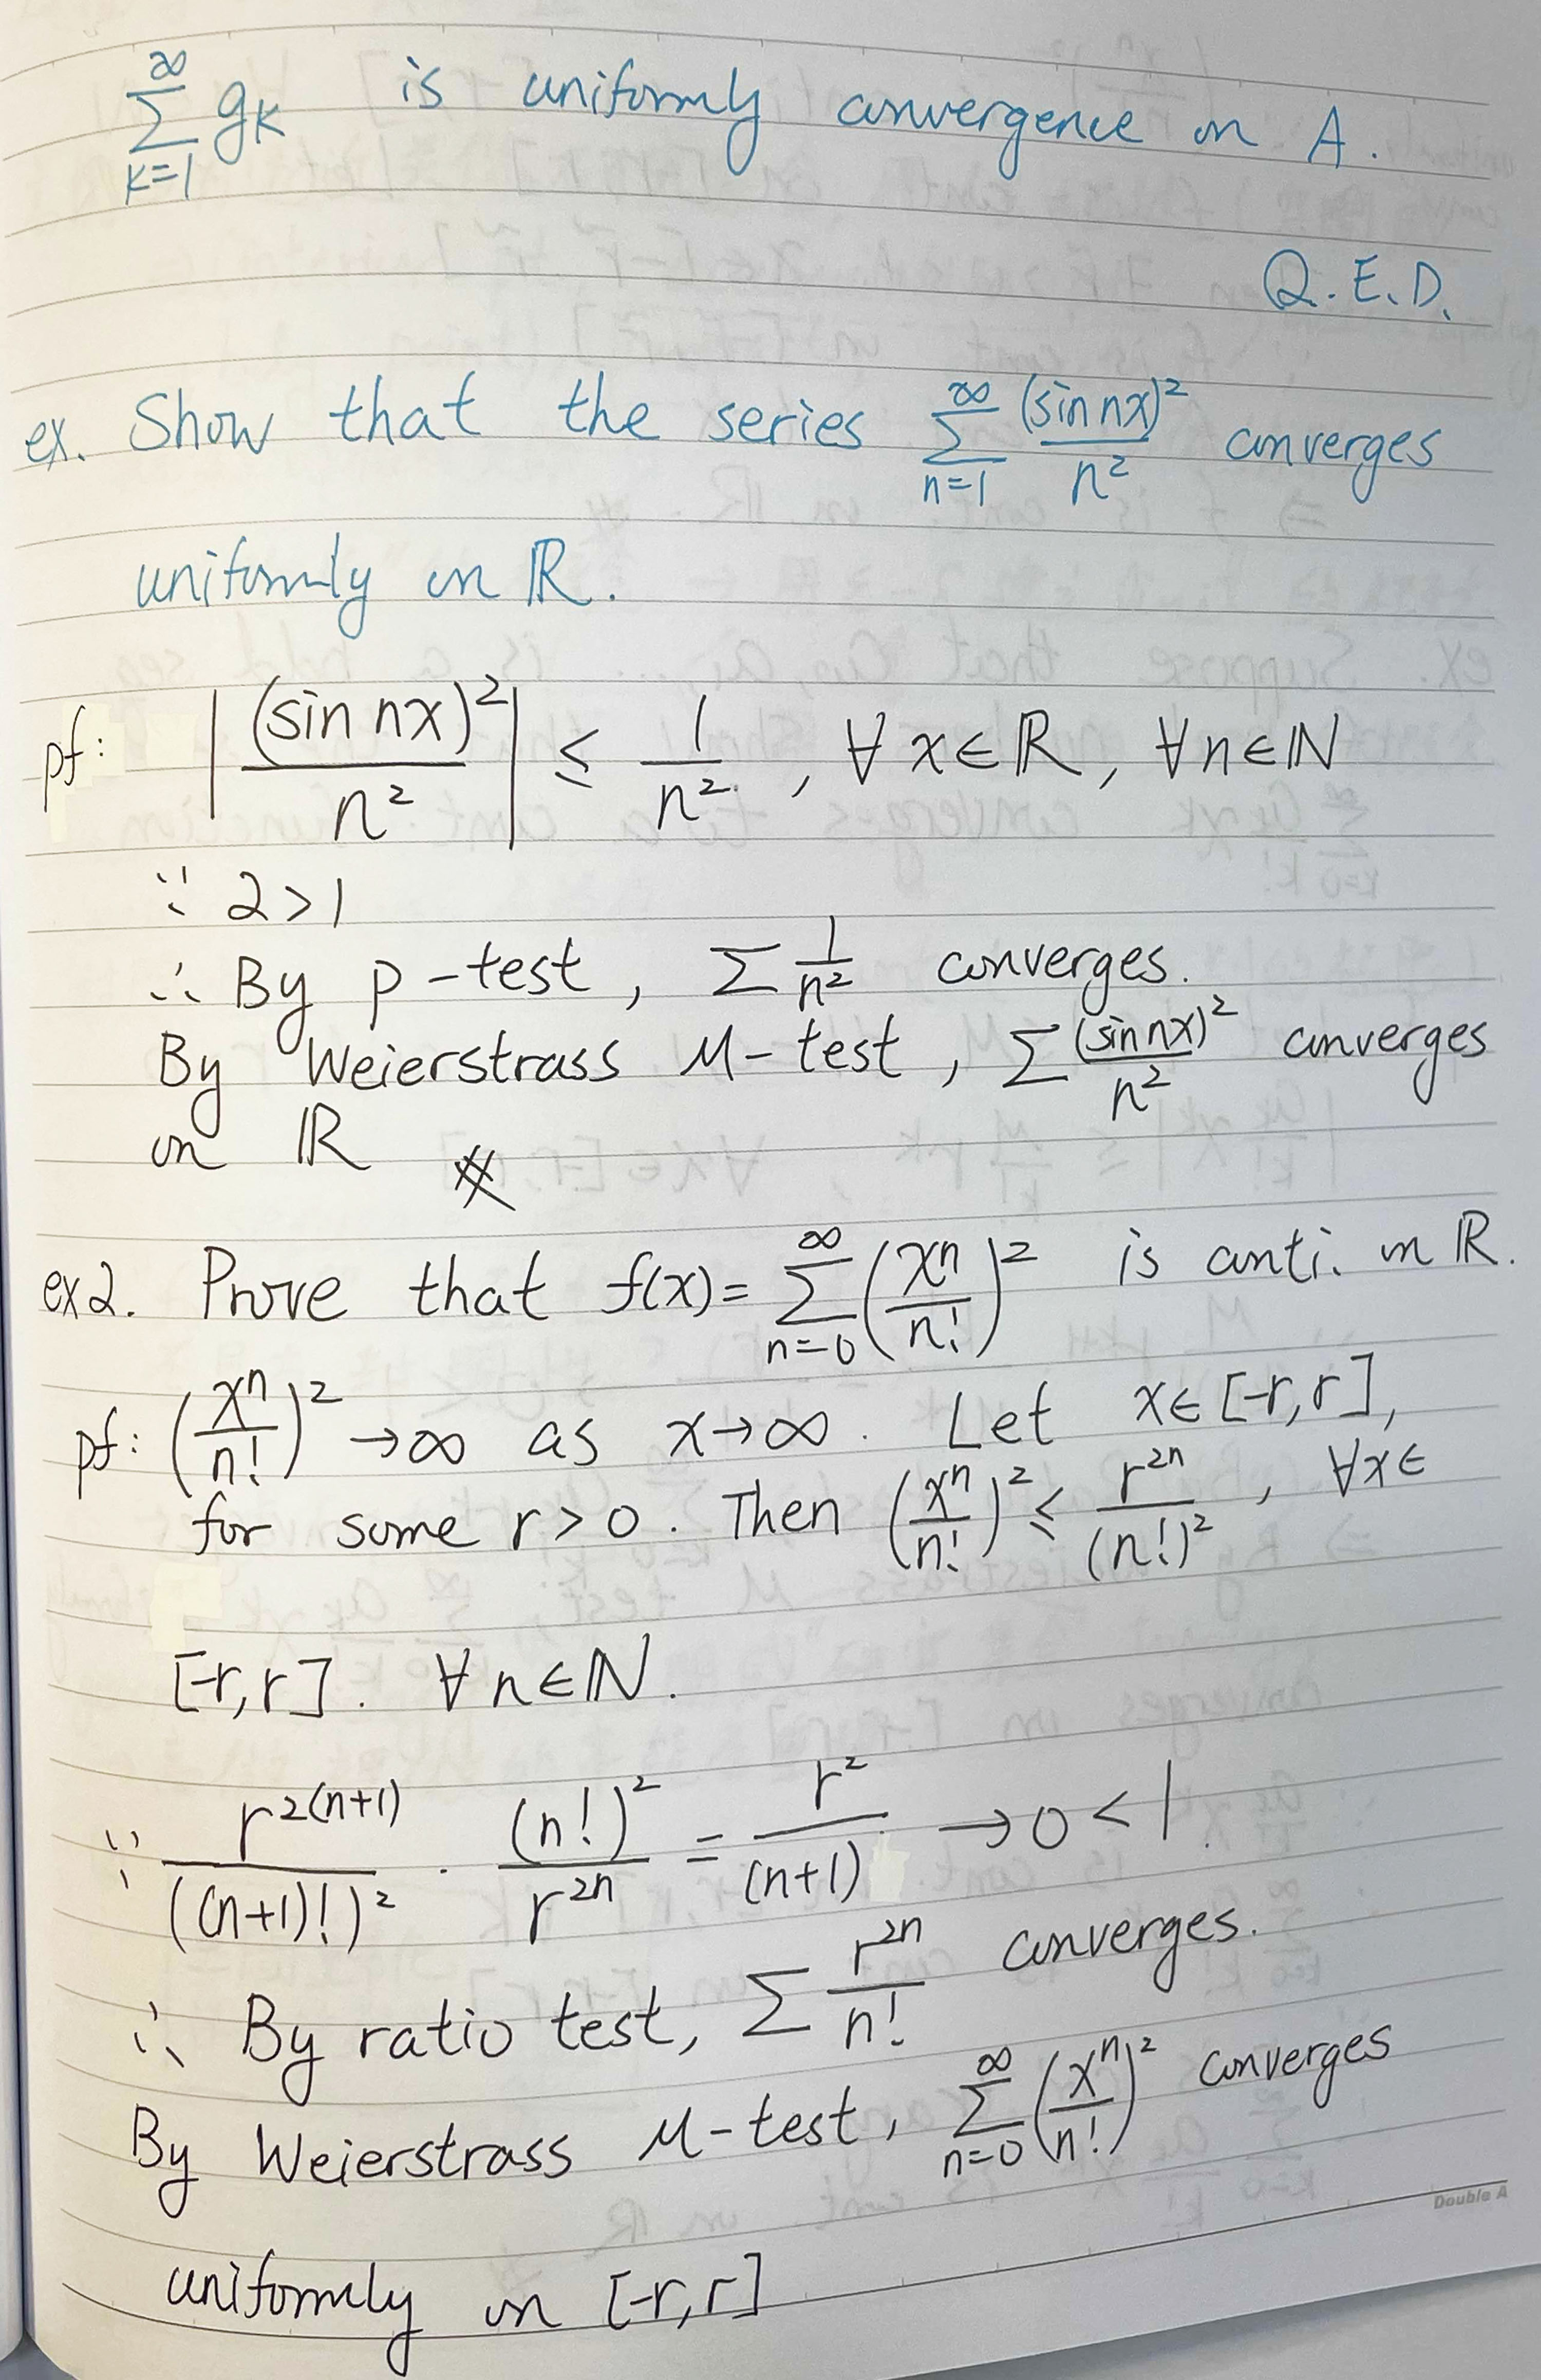 ∞∑k=1 gk is uniformly convergence on A.
Q.E.D.
ex. Show that the series ∞∑n=1 (sin nx)²/n² converges
uniformly on ℝ.
pf: |(sin nx)²/n²| ≤ 1/n², ∀x∈ℝ, ∀n∈ℕ
∵ 2>1
∴ By p-test, ∑ 1/n² converges.
By Weierstrass M-test, ∑ (sin nx)²/n² converges
on ℝ #
ex2. Prove that f(x)= ∞∑n=0 (xⁿ/n!)² is conti. on ℝ.
pf: (xⁿ/n!)² →∞ as x→∞. Let x∈[-r,r],
for some r>0. Then (xⁿ/n!)² ≤ r²ⁿ/(n!)², ∀x∈
[-r,r]. ∀n∈ℕ.
∵ r²⁽ⁿ⁺¹⁾/((n+1)!)² · (n!)²/r²ⁿ = r²/(n+1) →0<1.
∴ By ratio test, ∑ r²ⁿ/n! converges.
By Weierstrass M-test, ∞∑n=0 (xⁿ/n!)² converges
Double A
uniformly on [-r,r]